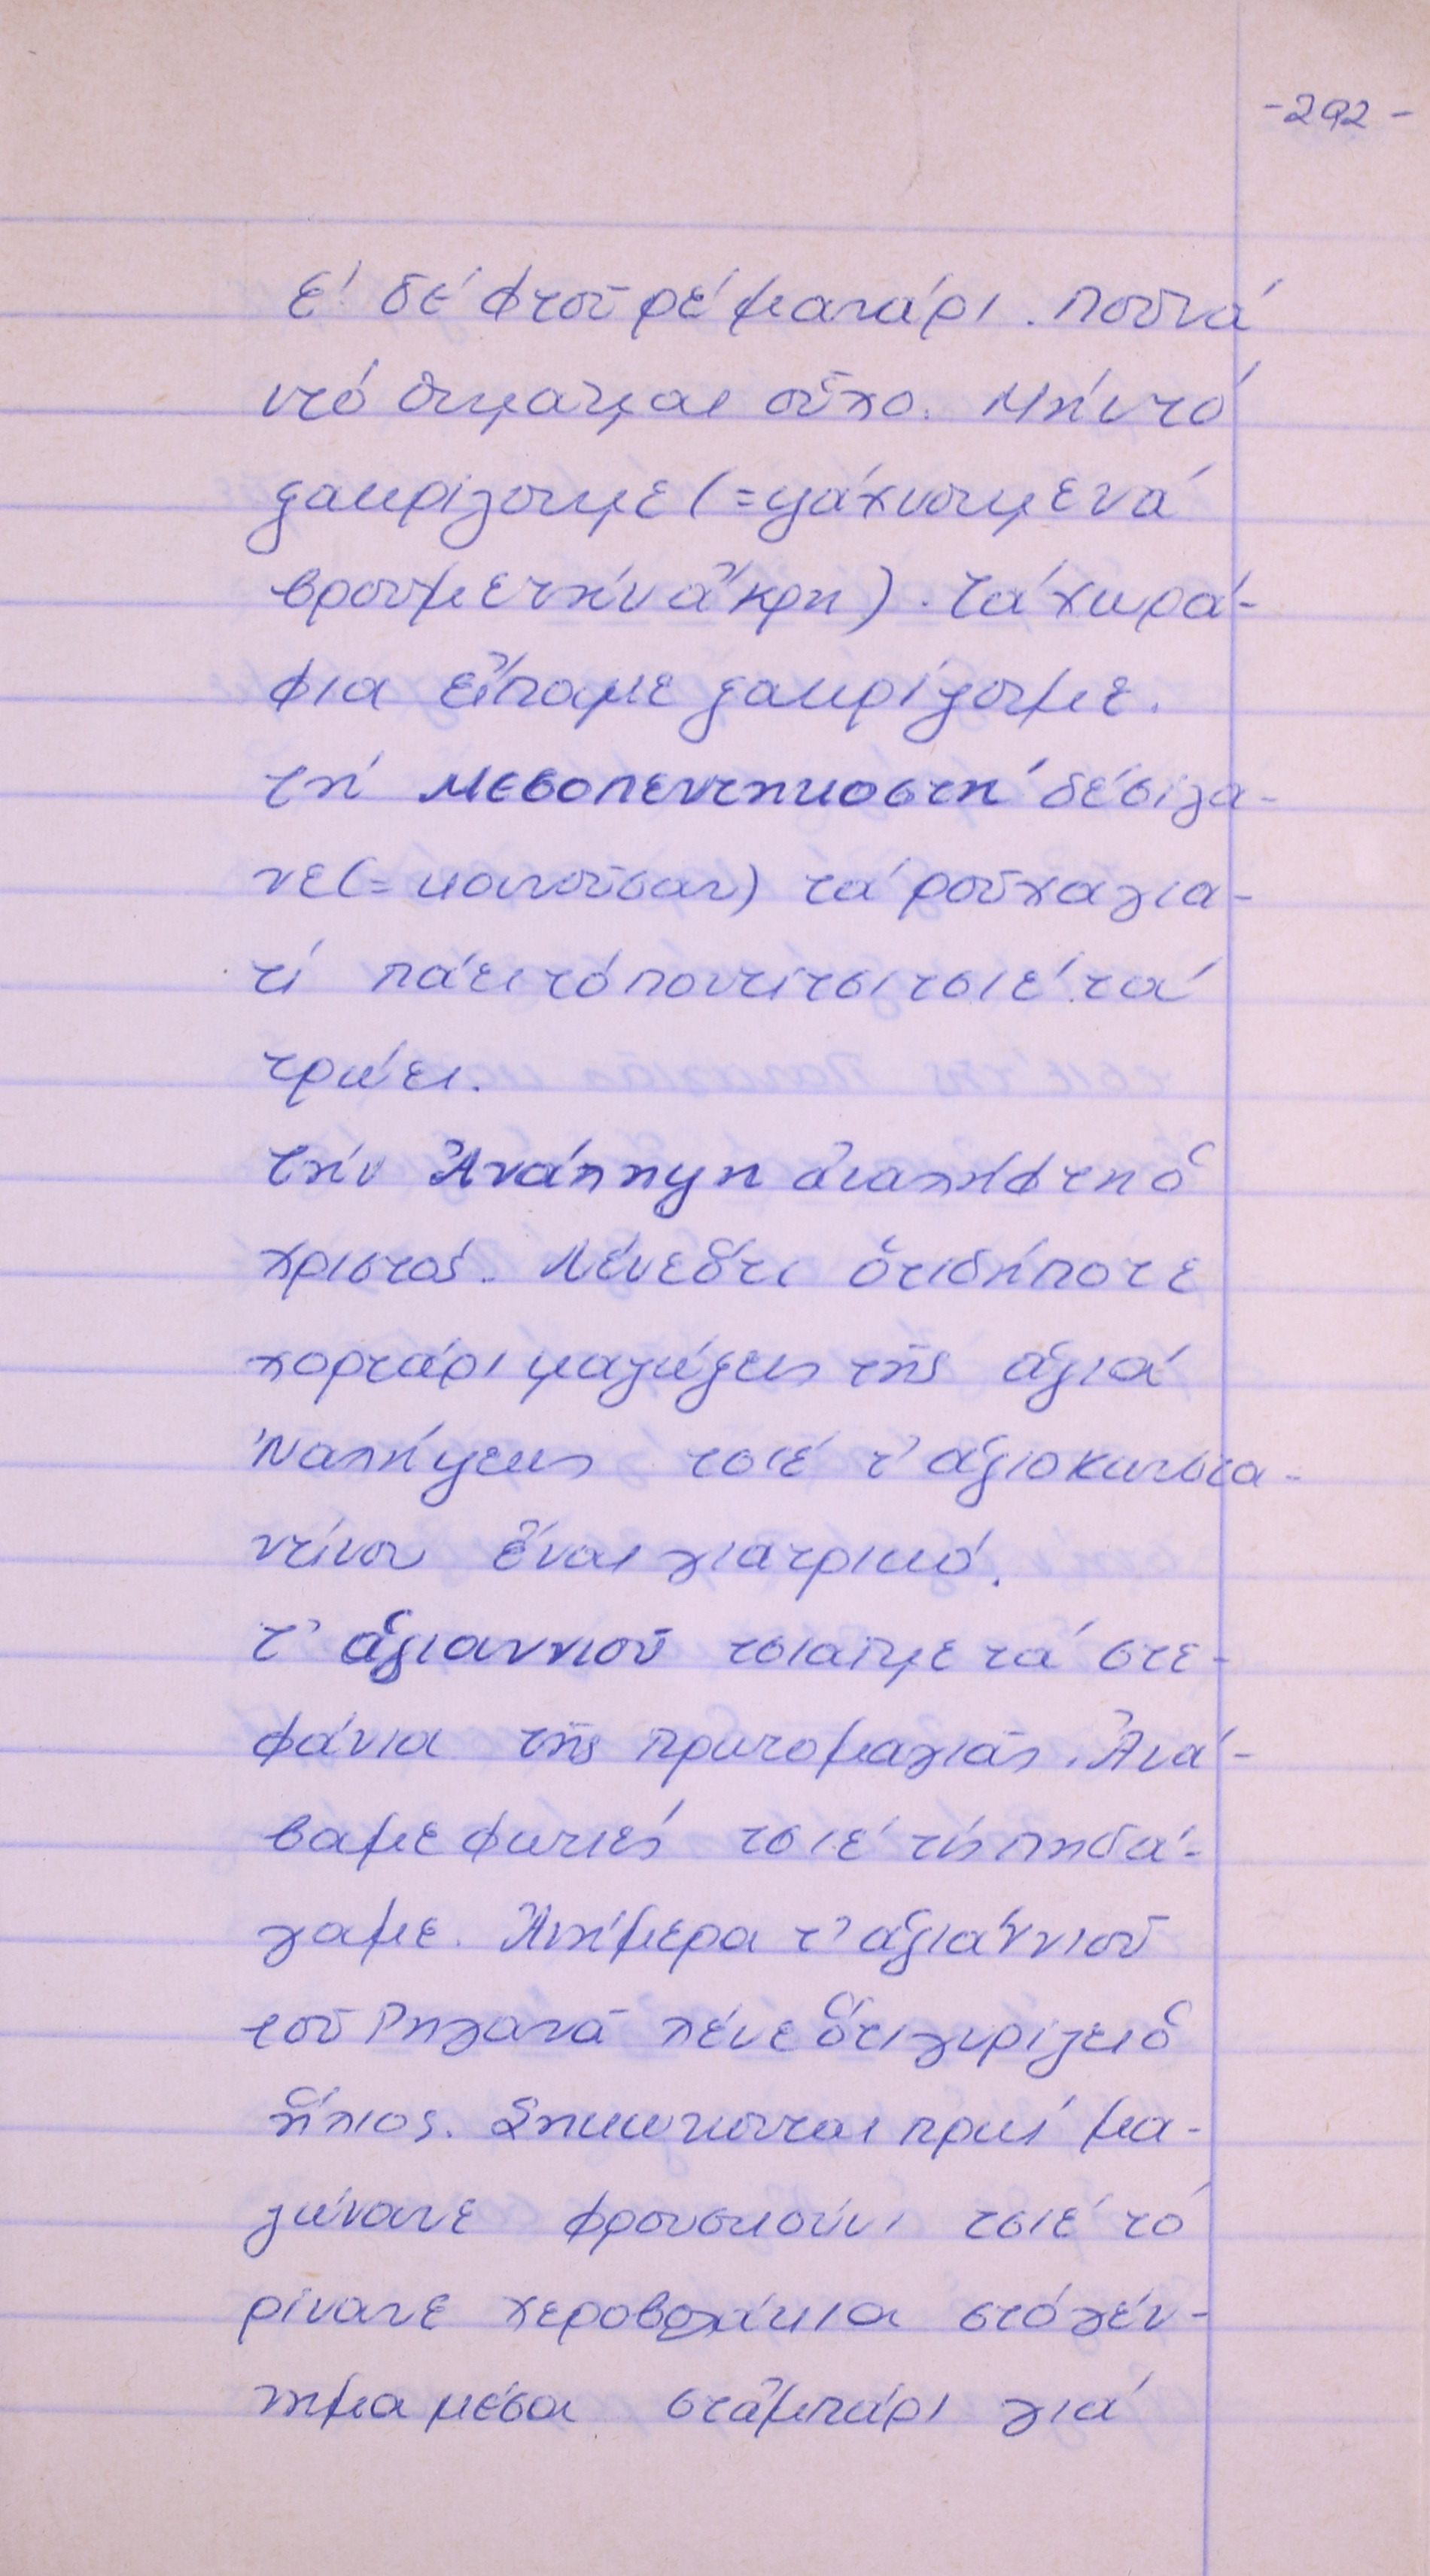 -292-
ἐ! δέ φτοῦ ρέ μανάρι. Ποῦ νά
ντό θυμᾶμαι οὗλο. Μή ντό
ξακρίζουμε (= ψάχνουμε νά
βροῦμε τήν ἄκρη). Τά χωρά-
φια εἴπαμε ξακρίζουμε.
Τή Μεσοπεντηκοστή δέ σίζα-
νε (= κουνοῦσαν) τά ροῦχα για-
τί πάει τό ποντίτσι τσιέ τά
τρώει.
Τήν Ἀνάληψη ἀναλήφτη ὁ
Χριστός. Λένε ὅτι ὁτιδήποτε
χορτάρι μαζώξεις τῆς ἁγιά
Ναλήψεως τσιέ τ' ἁγιοκωνστα-
ντίνου ἔναι γιατρικό.
Τ' ἁγιαννιοῦ τσιαῖμε τά στε-
φάνια τῆς πρωτομαγιᾶς. Ἀνά-
βαμε φωτιές τσιέ τίς πηδά-
γαμε. Ἀνήμερα τ' ἁγιάννιοῦ
τοῦ Ριγανᾶ λένε ὅτι γυρίζει ὁ
ἥλιος. Σηκώνουνται πρωί μα-
ζώνανε φρουσκούνι τσιέ τό
ρίνανε χεροβολάκια στό γέν-
νημα μέσα στἀμπάρι γιά